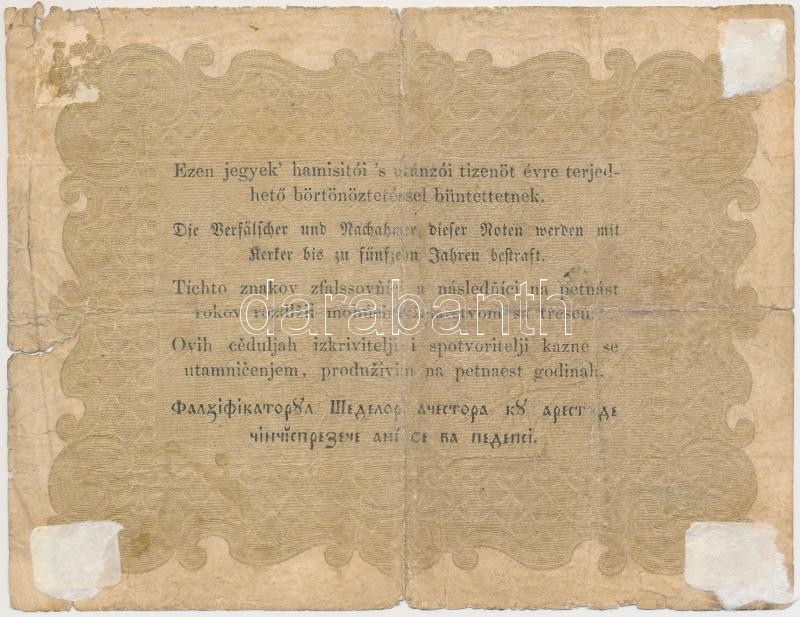 Ezen jegyek' hamisitói 's utánzói tizenöt évre terjed-
hető börtönöztetéssel büntettetnek.
Die Verfälscher und Nachahmer dieser Noten werden mit
Kerker bis zu fünfzehn Jahren bestraft.
Tíchto znakov zfalssovňíci a následňíci na petnást
rokov
darabanth
Ovih cěduljah izkrivitelji i spotvoritelji kazne se
utamničenjem, produživim na petnaest godinah.
Фалꙁіфікаторꙋл Шеделор ачестора кꙋ арест де
чінчіспреꙁече ані се ва педепсі.